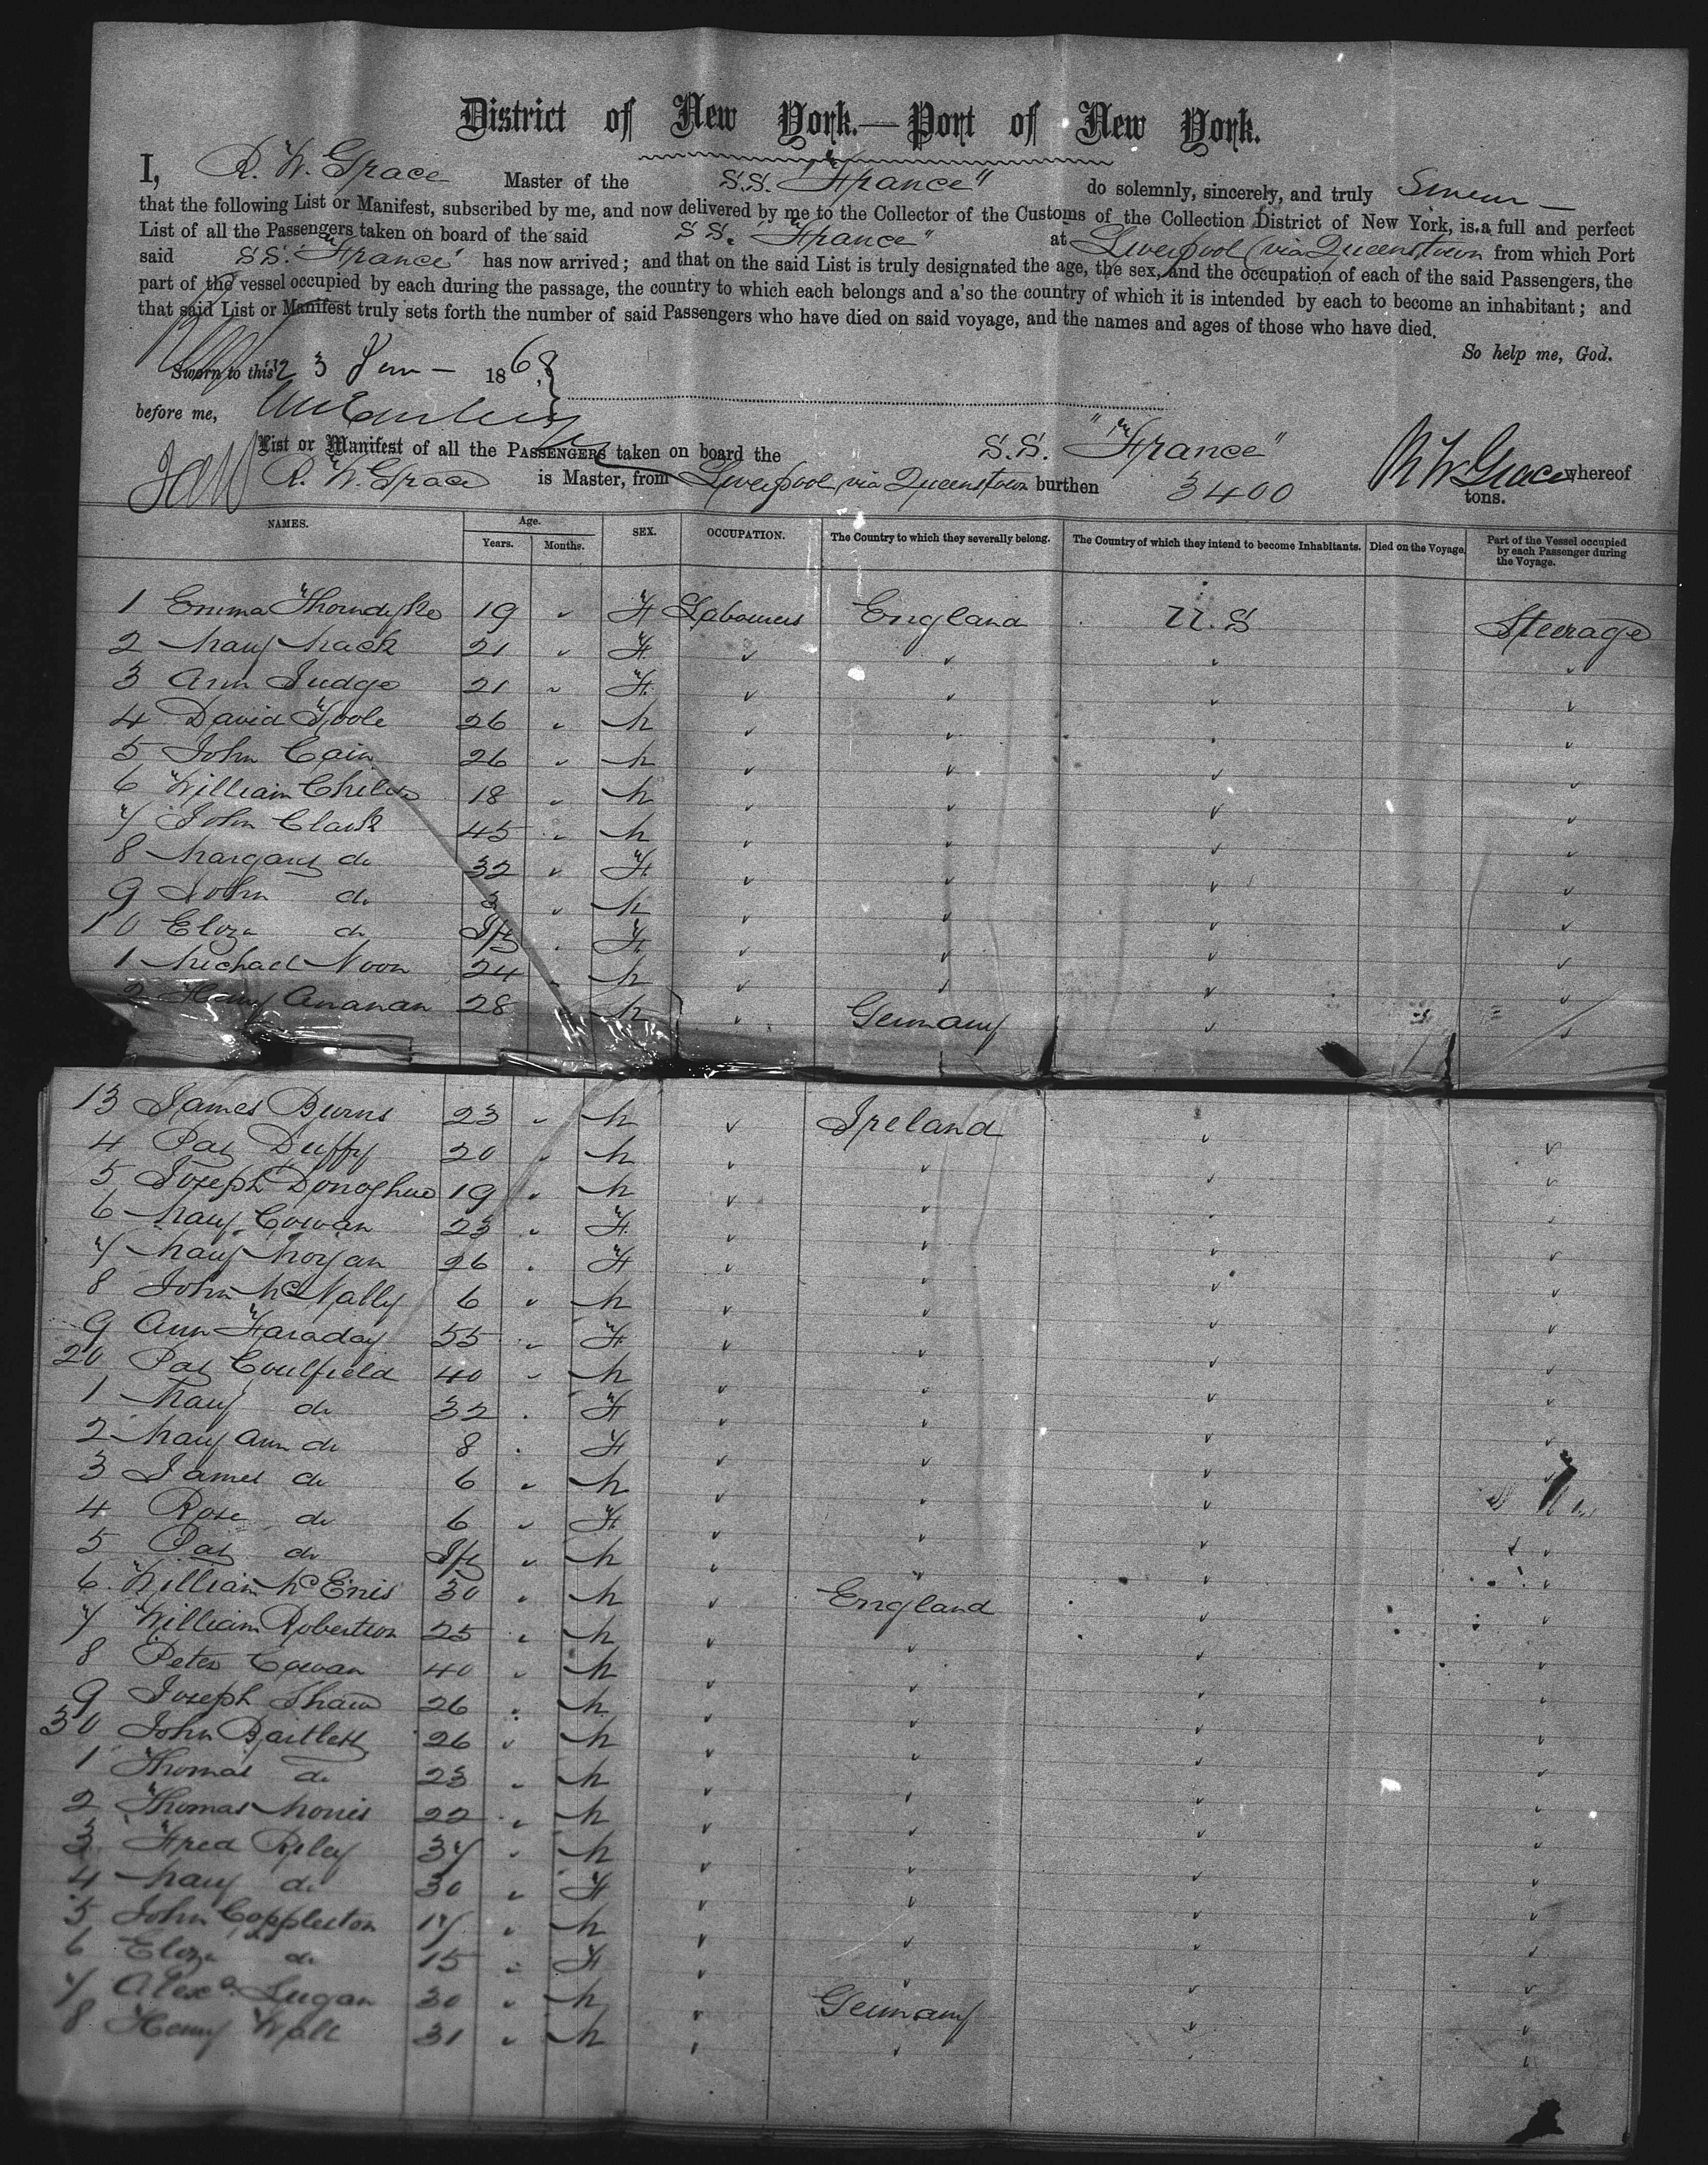 District of New York.—Port of New York.
I, R. W. Grace Master of the S.S. "France" do solemnly, sincerely, and truly Swear
that the following List or Manifest, subscribed by me, and now delivered by me to the Collector of the Customs of the Collection District of New York, is a full and perfect
List of all the Passengers taken on board of the said S.S. "France" at Liverpool (via Queenstown from which Port
said S.S. "France" has now arrived; and that on the said List is truly designated the age, the sex, and the occupation of each of the said Passengers, the
part of the vessel occupied by each during the passage, the country to which each belongs and a'so the country of which it is intended by each to become an inhabitant; and
that said List or Manifest truly sets forth the number of said Passengers who have died on said voyage, and the names and ages of those who have died.
So help me, God.
Sworn to this 23 186
before me,
List or Manifest of all the PASSENGERS taken on board the S.S. "France" whereof
R. W. Grace is Master, from Liverpool via Queenstown burthen 3400 tons.
R W Grace
NAMES. Age. SEX. OCCUPATION. The Country to which they severally belong. The Country of which they intend to become Inhabitants. Died on the Voyage. Part of the Vessel occupied by each Passenger during the Voyage.
Years. Months.
1 Emma Thorndyke 19 " F Labourers England U.S Steerage
2 Mary Mack 21 " F
3 Ann Judge 21 " F
4 David Toole 26 " M
5 John Cain 26 " M
6 William 18 " M
7 John Clark 45 " M
8 Margaret do 32 " F
9 John do 3 " M
10 Eliza do Inf " F
1 Michael Noon 24 " M
2 Henry Ananan 28 M Germany
13 James Burns 23 " M Ireland
4 Pat Duffy 20 " M
5 Joseph Donoghue 19 " M
6 Mary Cowan 23 " F
7 Mary Morgan 26 " F
8 John McNally 6 " M
9 Ann Faraday 55 " F
20 Pat Coulfield 40 " M
1 Mary do 32 " F
2 Mary Ann do 8 " F
3 James do 6 " M
4 Rose do 6 " F
5 Pat do Inf " M
6 William McEnis 30 " M England
7 William Robertson 25 " M
8 Peter Cowan 40 " M
9 Joseph Shaw 26 " M
30 John Bartlett 26 " M
1 Thomas do 23 " M
2 Thomas Morris 22 " M
3 Fred Riley 37 " M
4 Mary do 30 " F
5 John Coppleston 17 " M
6 Eliza do 15 " F
7 Alexr Lugan 30 " M Germany
8 Henry Wall 31 " M